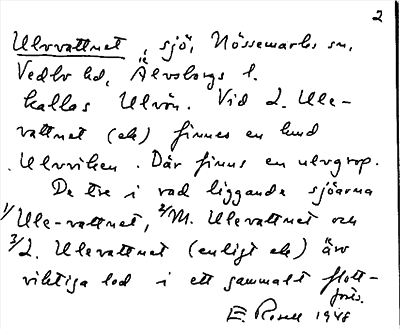 2
Ulevattnet, sjö, Nössemarks sn,
Vedbo hd, Älvsborgs l.
kallas Ulvön. Vid L. Ule-
vattnet (ek) finnes en lund
Ulvviken. Där finns en ulvgrop.
De tre i rad liggande sjöarna
1/ Ule-vattnet, 2/ M. Ulevattnet och
3/ L. Ulevattnet (enligt ek) äro
viktiga led i ett gammalt flott-
E. Rosell 1948